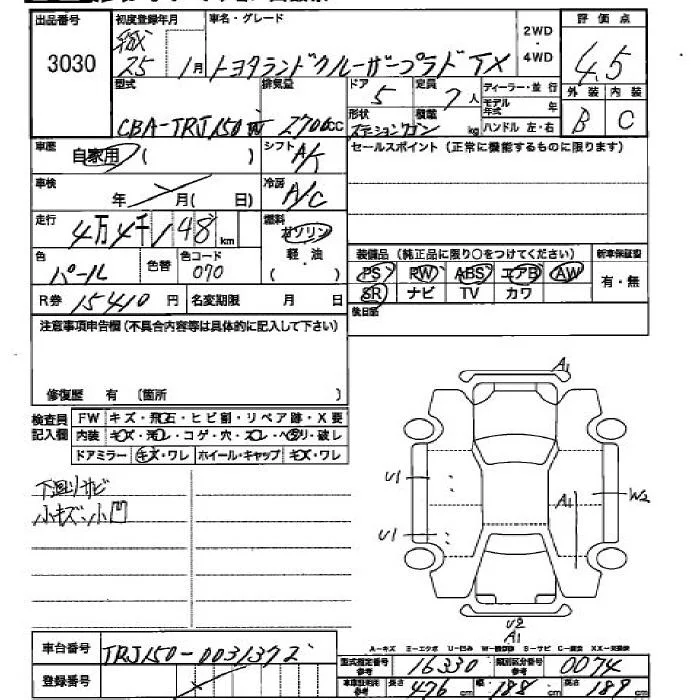 出品番号 初度登録年月 車名・グレード 評価点
3030 25 1月 トヨタランドクルーザープラド TX 2WD・4WD 4.5
型式 排気量 ドア 定員 ディーラー・並行 外装 内装
CBA-TRJ150W 2700cc 5 7人 モデル年式 年 B C
形状 積載 ハンドル 左・右
ステーションワゴン kg
車歴 自家用 ( ) シフト A/ セールスポイント (正常に機能するものに限ります)
車検 年 月( 日) 冷房 A/C
走行 4万4千148km 燃料 ガソリン 軽・油 ( )
色 パール 色替 色コード 070
装備品 (純正品に限り○をつけてください) 新車保証型
PS PW ABS エアB AW 有・無
SR ナビ TV カワ
R券 15410円 名変期限 月 日 後日品
注意事項申告欄 (不具合内容等は具体的に記入して下さい)
修復歴 有 (箇所 )
検査員記入欄 FW キズ・飛石・ヒビ割・リペア跡・X要
内装 キズ・汚レ・コゲ・穴・スレ・ヘタリ・破レ
ドアミラー キズ・ワレ ホイール・キャップ キズ・ワレ
下廻りサビ
小キズ・小凹
A1
U1
U1
A1
W2
U2
A1
A-キズ E-エクボ U-凹み S-サビ
車台番号 TRJ150-0031372
登録番号
型式指定番号 参考 16330 類別区分番号 参考 0074
参考 長さ 476cm 幅 188cm 高さ 189cm